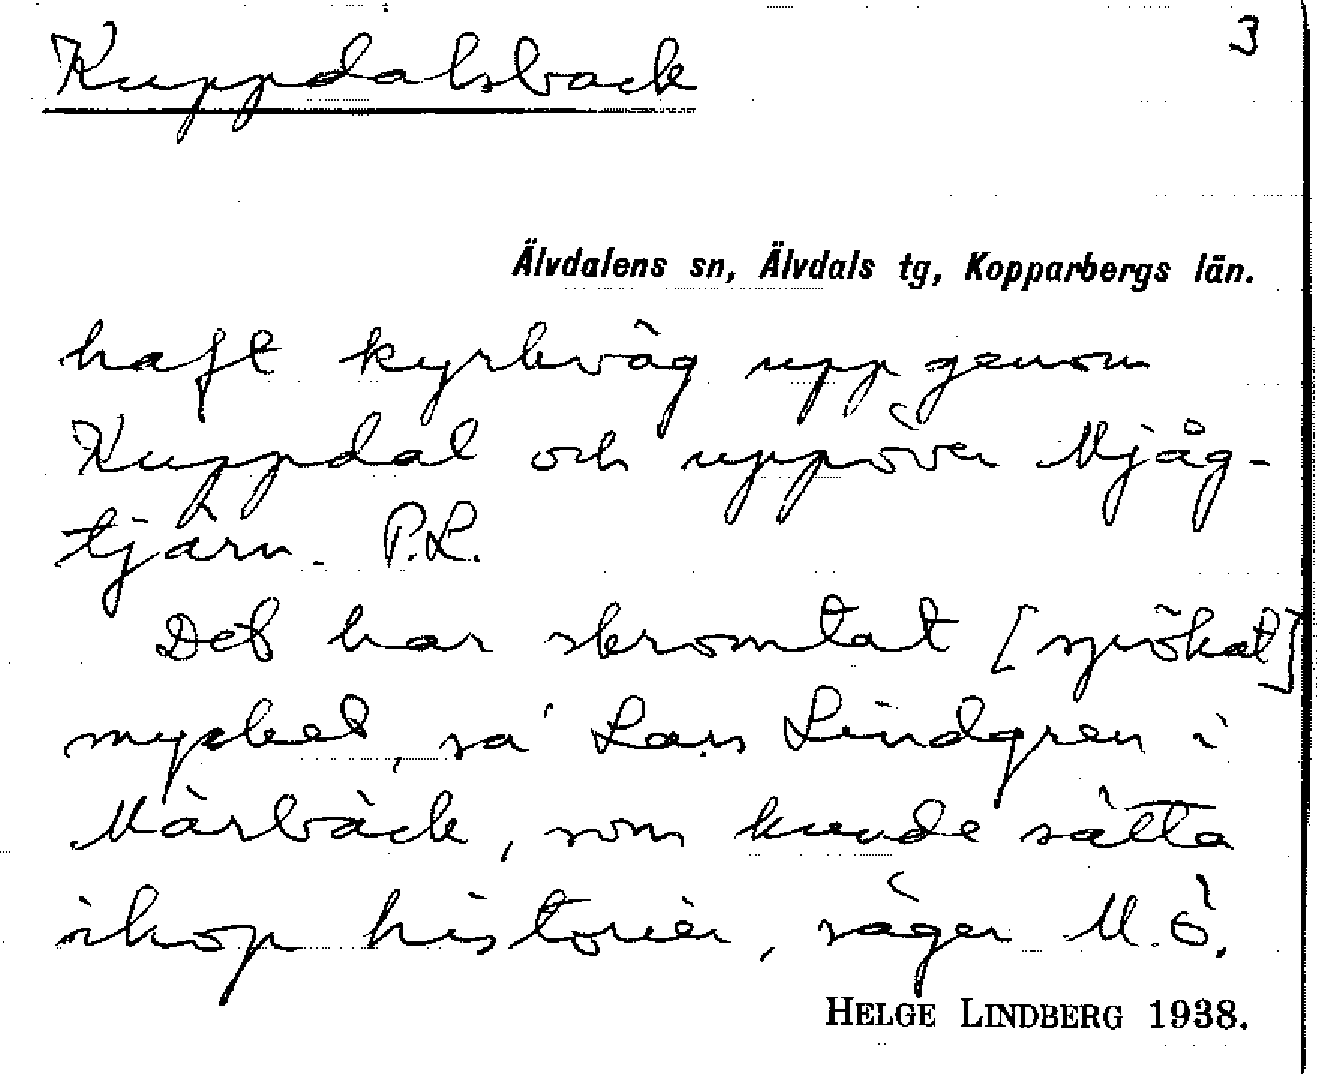 Kuppdalsback
3
Älvdalens sn, Älvdals tg, Kopparbergs län.
haft kyrkväg upp genom
Kuppdal och uppöver Mjåg-
tjärn. P.L.
Det har skromtat [spökat]
mycket, sa' Lars Lindgren i
Mårbäck, som kunde sätta
ihop historier, säger M.Ö.
HELGE LINDBERG 1938.